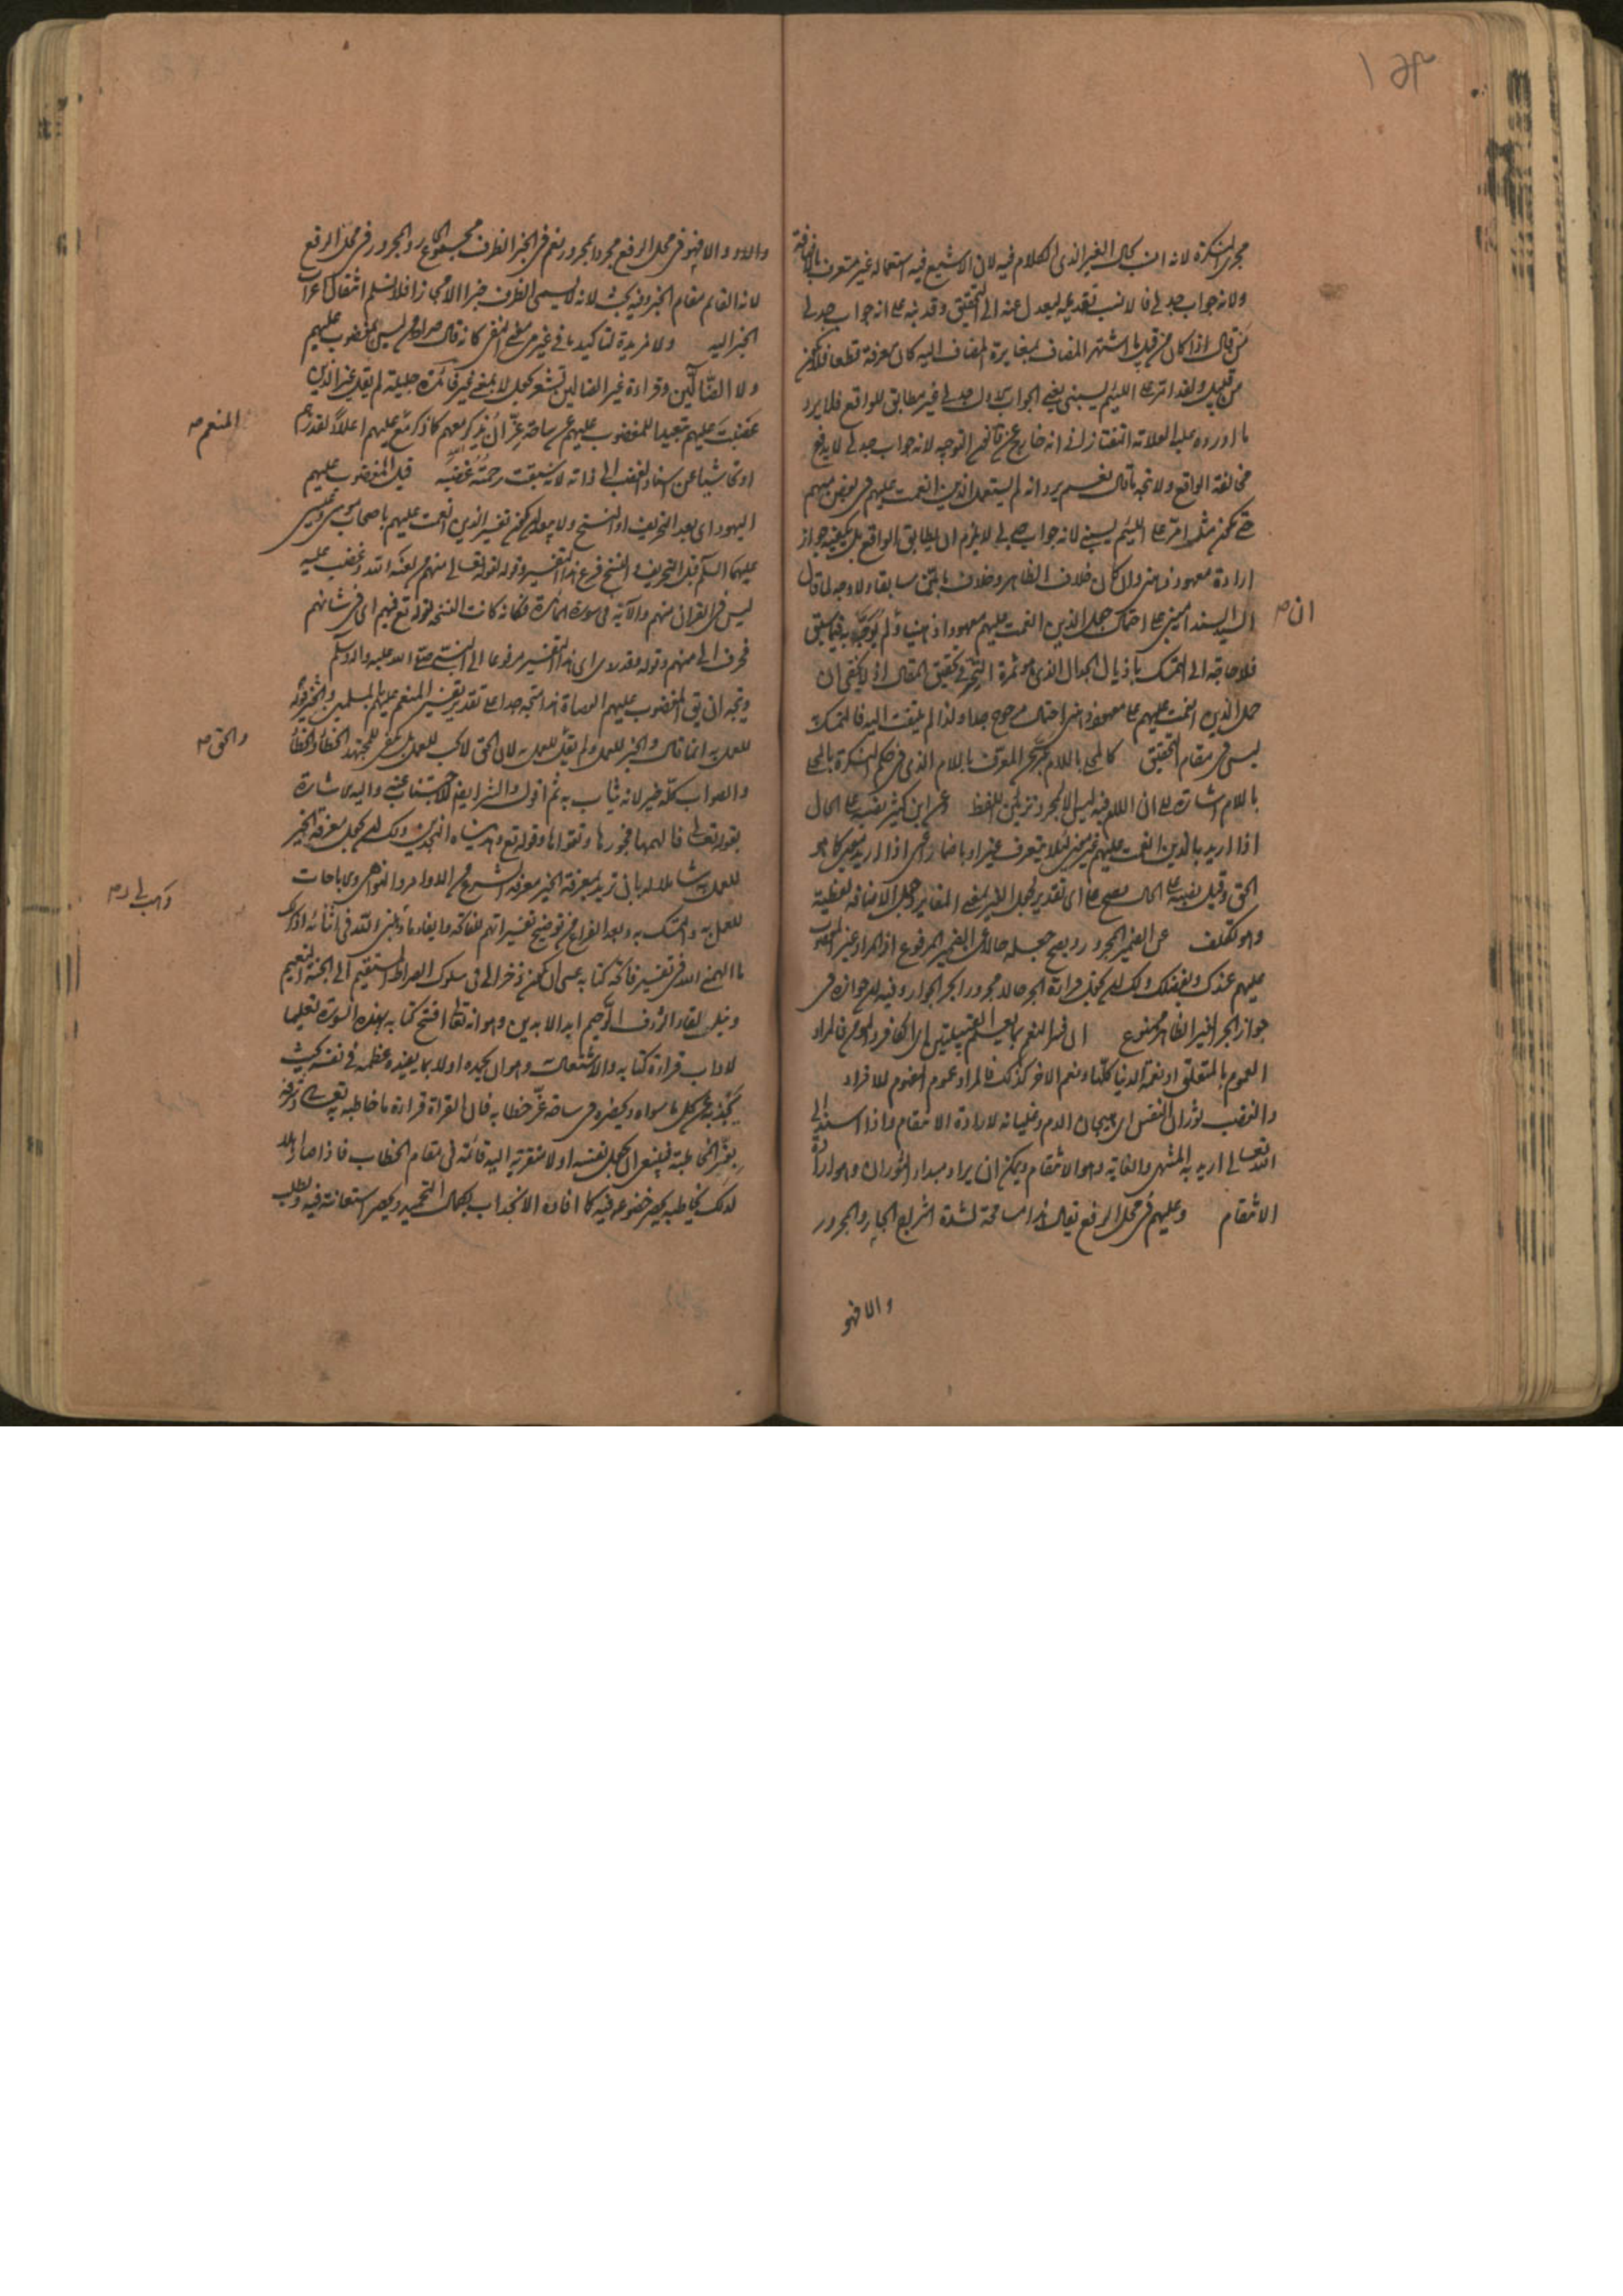 مجرى النكرة لانه انسب بحال الغير الذى الكلام فيه لان الاشيع فيه استعماله غير متعرف بالاضافة
ولانه جواب جدلى فالانسب تقديمه ليعدل عنه الى التحقيق وقد نبه على انه جواب جدلى
من قال اذا كان من قبيل ما اشتهر المضاف بمغايرة المضاف اليه كان معرفة قطعا فلا يكون
من قبيل ولقد امر على اللئيم يسبنى يعنى الجواب الاول جدلى غير مطابق للواقع فلا يرد
ما اورده عليه العلامة التفتازانى انه خارج عن قانون التوجيه لانه جواب جدلى لا يدفع
مخالفة الواقع ولا يتجه ما قال نعم يرد انه لم يستعمل الذين انعمت عليهم فى بعض مبهم
حتى يكون مثل امر على اللئيم يسبنى لانه جواب جدلى لا يلزم ان يطابق الواقع بل يكفيه جواز
ارادة معهود ذهنى وان كان خلاف الظاهر وخلاف ما سابقا ولا وجه لما قال
السيد السند مبنى على احتمال جعل الذين انعمت عليهم معهودا ذهنيا ولم يوجه به فيما سبق
ان صح
فلا حاجة الى التمسك باذيال الجدال الذى هو ثمرة التحير فى تحقيق المقال اذ لا يخفى ان
حمل الذين انعمت عليهم على معهود ذهنى احتمال مرجوح جدا ولذا لم يلتفت اليه فالتمسك
ليس فى مقام التحقيق كالمحلى باللام المعرف باللام الذى فى حكم النكرة بالمحلى
باللام اشارة الى ان اللام فيه ليس الا لمجرد تزيين اللفظ وعن ابن كثير نصبه على الحال
اذا اريد بالذين انعمت عليهم غير معين لئلا يتعرف غير او باضمار اعنى اذا اريد معين كما هو
الحق وقيل نصبه على الحال يصح على اى تقدير لجعل الغير بمعنى المغاير وجعل الاضافة لفظية
وهو تكلف عن الضمير المجرور ويصح جعله حالا عن الضمير المرفوع اذ المراد غير المغضوب
عليهم عندك وبغضبك ولك ان تجعل قراءة الجر حالا مجرورا بجر الجوار وفيه ان جوازه فى
جواز الجر لغير الظاهر ممنوع ان فسر النعم بما يعم القبيلتين اى الكافر والمؤمن فالمراد
العموم بالمتعلق او نعمة الدنيا كلها ونعم الاخر كذلك فالمراد عموم المفهوم للافراد
والغضب ثوران النفس اى هيجان الدم وغليانه لارادة الانتقام واذا اسند الى
الله تعالى اريد به المنتهى والغاية وهو الانتقام ويمكن ان يراد مبدا الثوران وهو ارادة
الانتقام وعليهم فى محل الرفع يقال هذا مسامحة لشدة اتباع الجار والمجرور
والا فهو
والا فهو فى محل الرفع مجرد المجرور نعم فى الخبر الظرف مجموع الجار والمجرور فى محل الرفع
لانه القائم مقام الخبر وفيه بحث لانه لا يسمى الظرف خبرا الا مجازا فلا نسلم انتقال اعراب
الخبر اليه ولا مزيدة لتاكيد ما فى غير من معنى النفى كانه قال صراط من ليس بمغضوب عليهم
ولا الضالين وقراءة غير الضالين تشعر بجعل لا بمعنى غير فائدة جليلة لم يقل غير الذين
غضبت عليهم تبعيدا للمغضوب عليهم عن ساحة عز ان يذكر معهم كما ذكر مع عليهم اعلاء لقدرهم
المنعم صح
او تحاشيا عن اسناد الغضب الى ذاته لانه سبقت رحمته غضبه قيل المغضوب عليهم
اليهود اى بعد التحريف او النسخ ولا يبعد ان يكون تفسير الذين انعمت عليهم باصحاب موسى وعيسى
عليهما السلام قبل التحريف والنسخ فرع هذا التفسير وقوله لقوله تعالى منهم من لعنه الله وغضب عليه
ليس فى القران منهم والآية فى سورة المائدة وكانه كانت النسخة لقوله تع فيهم اى فى شانهم
فحرف الى منهم وقوله وقد روى اى هذا التفسير مرفوعا الى النبى صلى الله عليه واله وسلم
ويتجه ان يق المغضوب عليهم العصاة هذا متجه جدا على تقدير تفسير المنعم عليهم بالمسلمين والخير
للعمل به انما قال والخير للعمل ولم يقل للعمل به لان الحق لا يجب للعمل بل يكفى للمجتهد الخطا والخطا
والحق صح
والصواب كله خير لانه يثاب به ثم اقول والشر ايضا لاجتناب عنه واليه الاشارة
بقوله تعالى فالهمها فجورها وتقواها وقوله تع وهديناه النجدين ولك ان تجعل معرفة الخير
للعمل به شاملا له بان تريد بمعرفة الخير معرفة المشروع من الاوامر والنواهى والاباحات
للعمل به والتمسك به وبعد الفراغ من توضيح تفسيراتهم للفاتحة وما يفاد ما وفقنى الله فى اثنائه اذكر
ما الهمنى الله فى تفسير فاتحة كتابه عسى ان يكون ذخرا لى فى سلوك الصراط المستقيم الى الجنة النعيم
ونيل لقاء الرؤف الرحيم ابد الابدين وهو انه تعالى افتتح كتابه بهذه السورة تعليما
لاداب قراءة كتابه والاشتغال وهو ان يحمده اولا بما يفيده عظمه فى نفسه بحيث
يجذبه عن كل ما سواه ويحضره فى ساحة عز خطابه فان القراة قراءة ما خاطبه به تعالى وشرفه
بعز المخاطبة فينبغى ان يجعل نفسه اولا متقربة اليه قائمة فى مقام الخطاب فاذا صار
لذلك يخاطبه بحصر خضوعه فيه كما افاده الانجذاب بكمال التحميد وبحصر استعانته فيه ويطلب